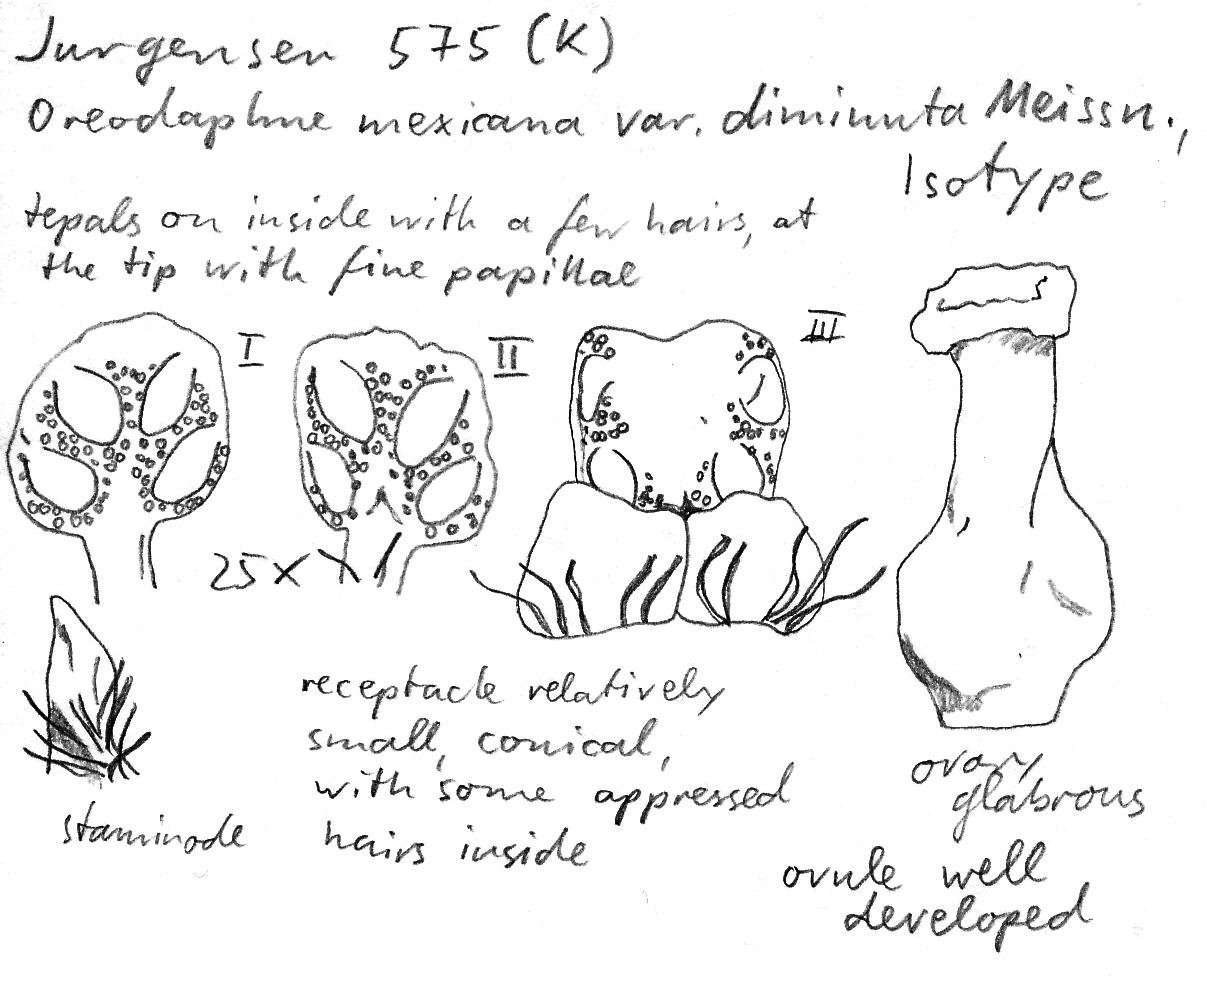 Jurgensen 575 (K)
Oreodaphne mexicana var. diminuta Meissn.,
Isotype
tepals on inside with a few hairs, at
the tip with fine papillae
I
II
III
25 x
receptacle relatively
small, conical,
with some appressed
hairs inside
staminode
ovary
glabrous
ovule well
developed